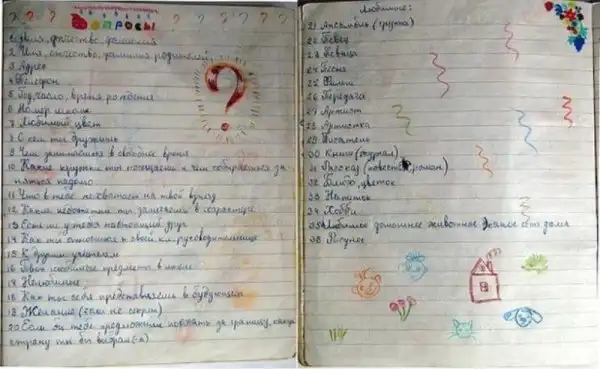 Вопросы
1 Имя, отчество, фамилия
2 Имя, отчество, фамилия родителей
3 Адрес
4 Телефон
5 Год, число, время рождения
6 Номер школы
7 Любимый цвет
8 С кем ты дружишь
9 Чем занимаешься в свободное время
10 Какие кружки ты посещаешь и чем собираешься за-
няться надолго
11 Что в тебе не хватает на твой взгляд
12 Какие недостатки ты замечаешь в
13 Есть ли у тебя настоящий друг
14 Как ты относишься к своей кл. руководительнице
15 К другим учителям
16 Твои любимые предметы в школе
17 Нелюбимые
18 Как ты себя представляешь в будущем
19 Желание (если не секрет)
20 Если бы тебе предложили поехать за границу, какую
страну ты бы выбрал (-а)
Любимые:
21 Ансамбль (группа)
22 Певец
23 Певица
24 Песня
25 Фильм
26 Передача
27 Артист
28 Артистка
29 Писатель
30 Книга (журнал)
31 Рассказ (повесть, роман)
32 Блюдо, цветок
33 Напиток
34 Хобби
35 Любимое домашнее животное Есть ли дома
36 Рисунок